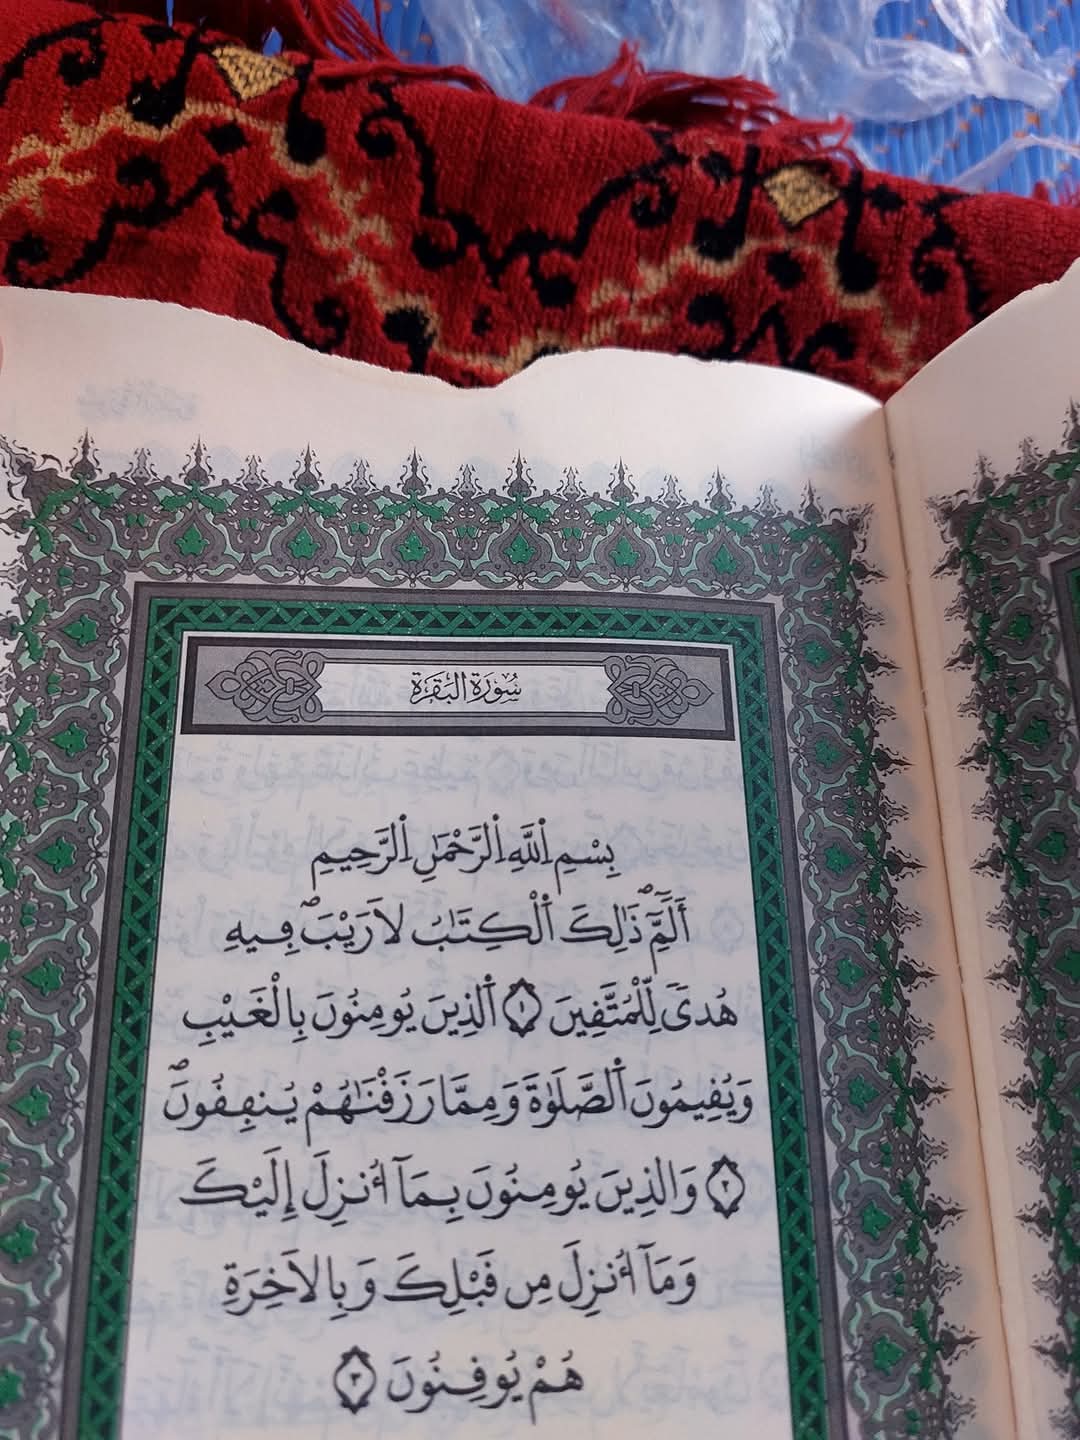 سُورَةُ البَقَرَة
بِسْمِ اِ۬للَّهِ اِ۬لرَّحْمَٰنِ اِ۬لرَّحِيمِ
أَلَٓمِّٓۖ ذَٰلِكَ اَ۬لْكِتَٰبُ لَا رَيْبَۖ ڢِيهِ
هُدىٗ لِّلْمُتَّڧِينَ ۝١ اَ۬لذِينَ يُومِنُونَ بِالْغَيْبِ
وَيُڧِيمُونَ اَ۬لصَّلَوٰةَ وَمِمَّا رَزَڧْنَٰهُمْ يُنڢِڧُونَۖ
۝٢ وَالذِينَ يُومِنُونَ بِمَآ أُنزِلَ إِلَيْكَ
وَمَآ أُنزِلَ مِن ڧَبْلِكَ وَبِالَاخِرَةِ
هُمْ يُوڧِنُونَ ۝٣